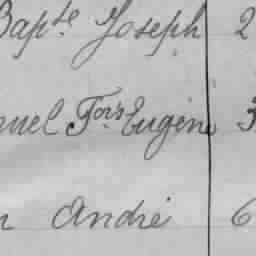 Bapte Joseph 2
uel Fois Eugène 3
André 6